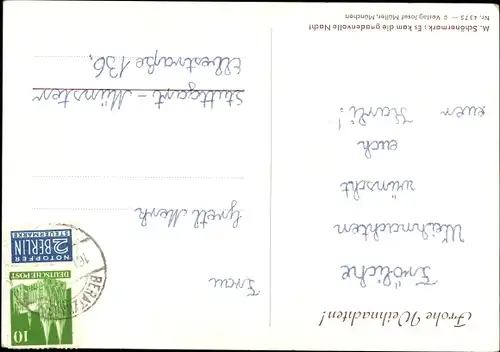 Frohe Weihnachten!
Fröhliche
Weihnachten
wünscht
euch
euer Karli!
M. Schönermark: Es kam die gnadenvolle Nacht
Nr. 4373 — © Verlag Josef Müller, München
10
DEUTSCHE POST
NOTOPFER
2 BERLIN
STEUERMARKE
Frau
Gretl Merk
Stuttgart - Münster
Elbestraße 136,